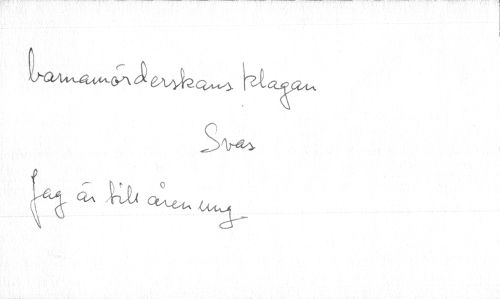 barnamörderskans klagan
Svas
Jag är till åren ung.